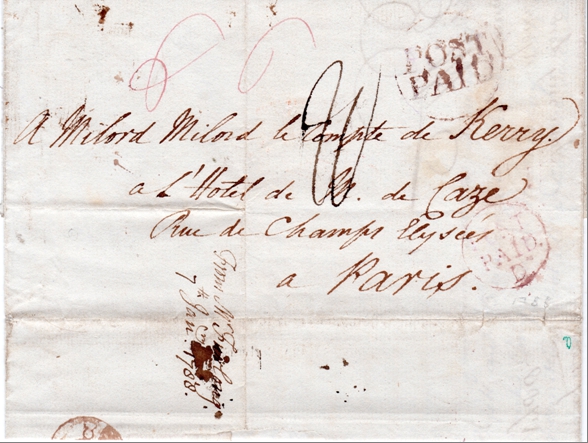 POST
PAID
A Milord Milord le Compte de Kerry.
a L'Hotel de M. de Caze
Rue de Champs Elyseés
a Paris.
PAID
From M.
7 Jan 1788.